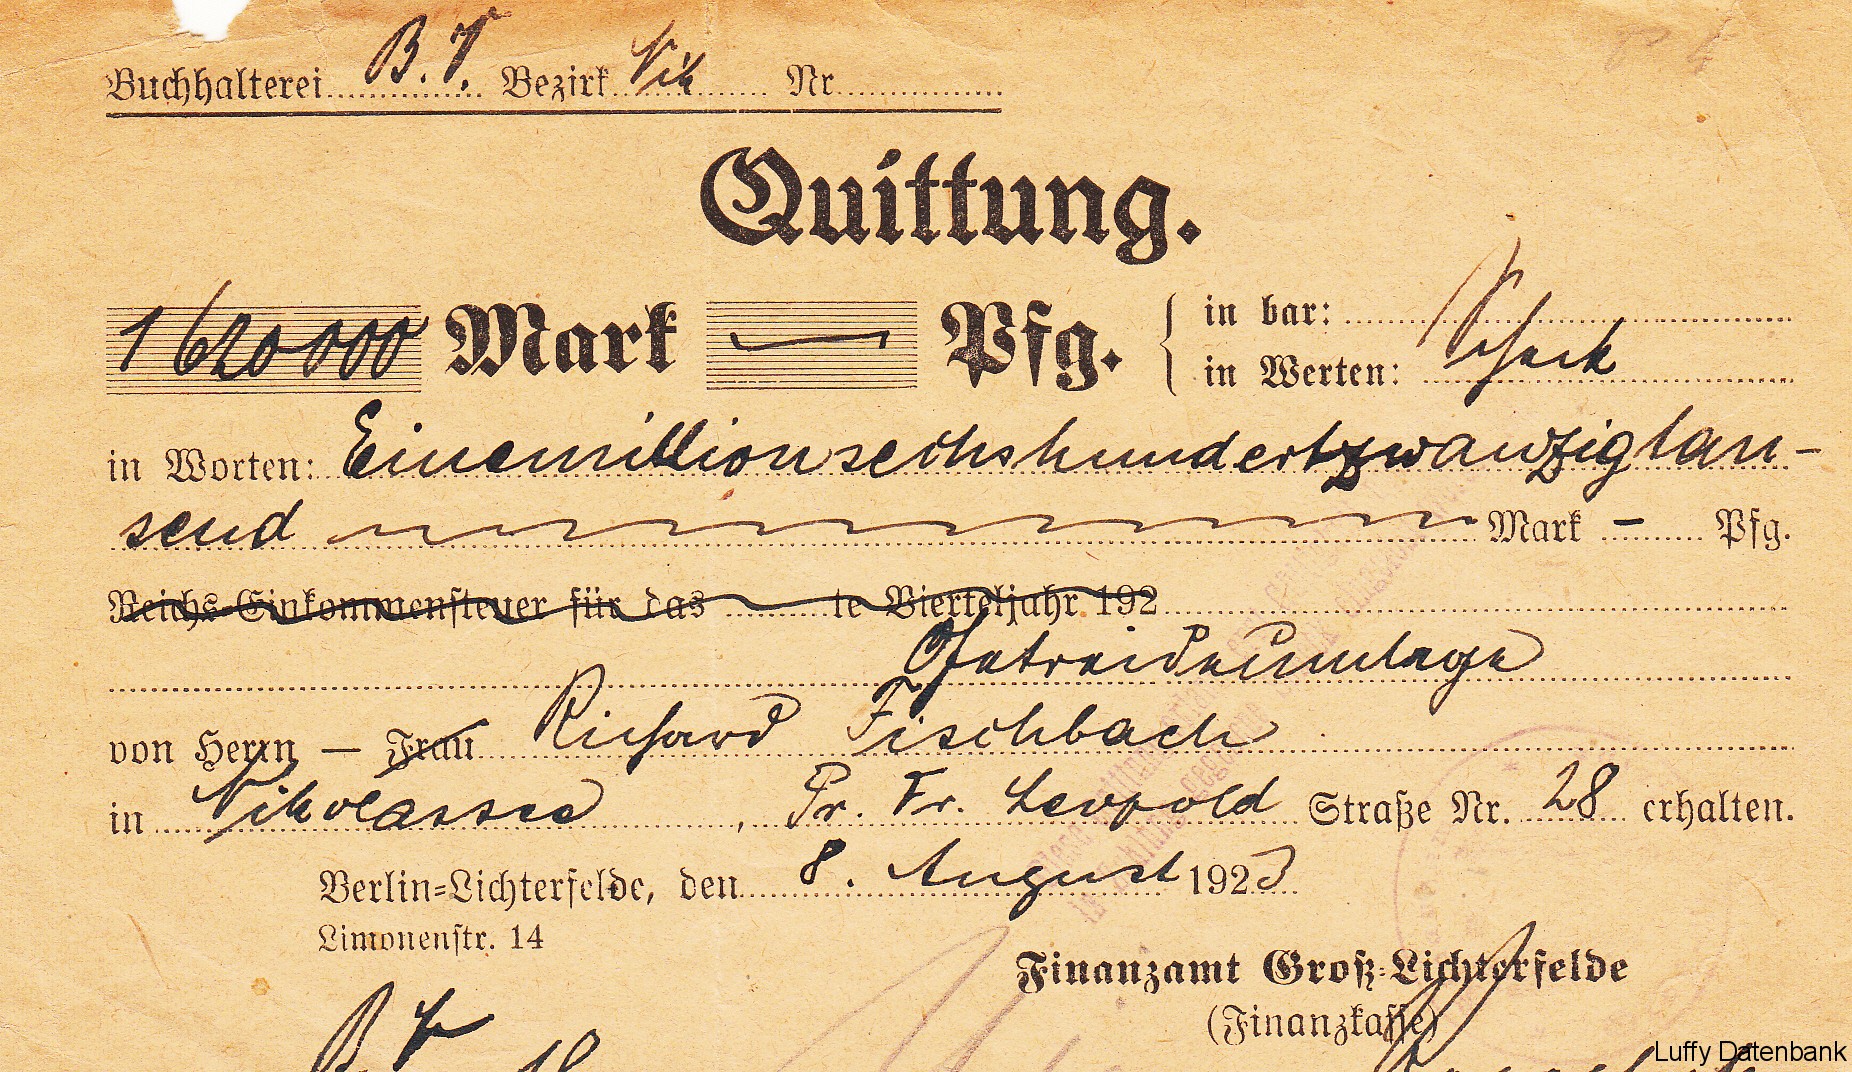 Buchhalterei B.V. Bezirk Nik Nr
Quittung.
1620000 Mark — Pfg. { in bar:
in Werten: Scheck
in Worten: Einemillionsechshundertzwanzigtau-
send Mark — Pfg.
Reichs-Einkommensteuer für das te Vierteljahr 192
Getreideumlage
von Herrn — Frau Richard Fischbach
in Nikolassee, Pr. Fr. Leopold Straße Nr. 28 erhalten.
Berlin-Lichterfelde, den 8. August 1923
Limonenstr. 14
Finanzamt Groß-Lichterfelde
(Finanzkasse)
Luffy Datenbank